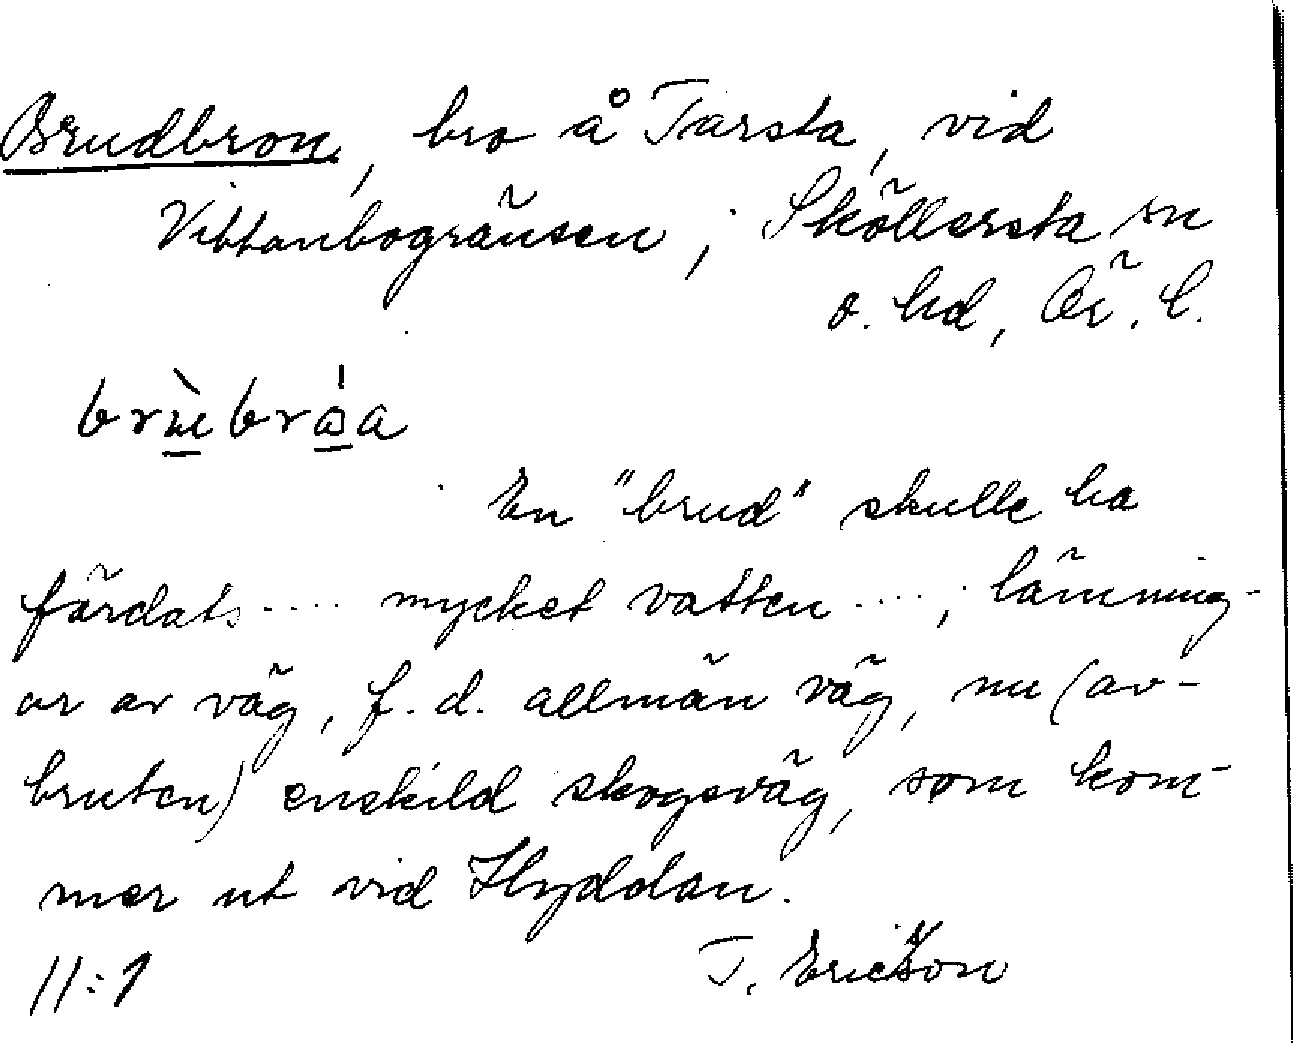 Brudbron, bro å Tarsta, vid
Vittanbogränsen; Sköllersta sn
o. hd, Ör. l.
brùbrǻa
En "brud" skulle ha
färdats .... mycket vatten ....; lämning-
ar av väg, f. d. allmän väg, nu (av-
bruten) enskild skogsväg, som kom-
mer ut vid Hyddan.
11:1 T. Ericson